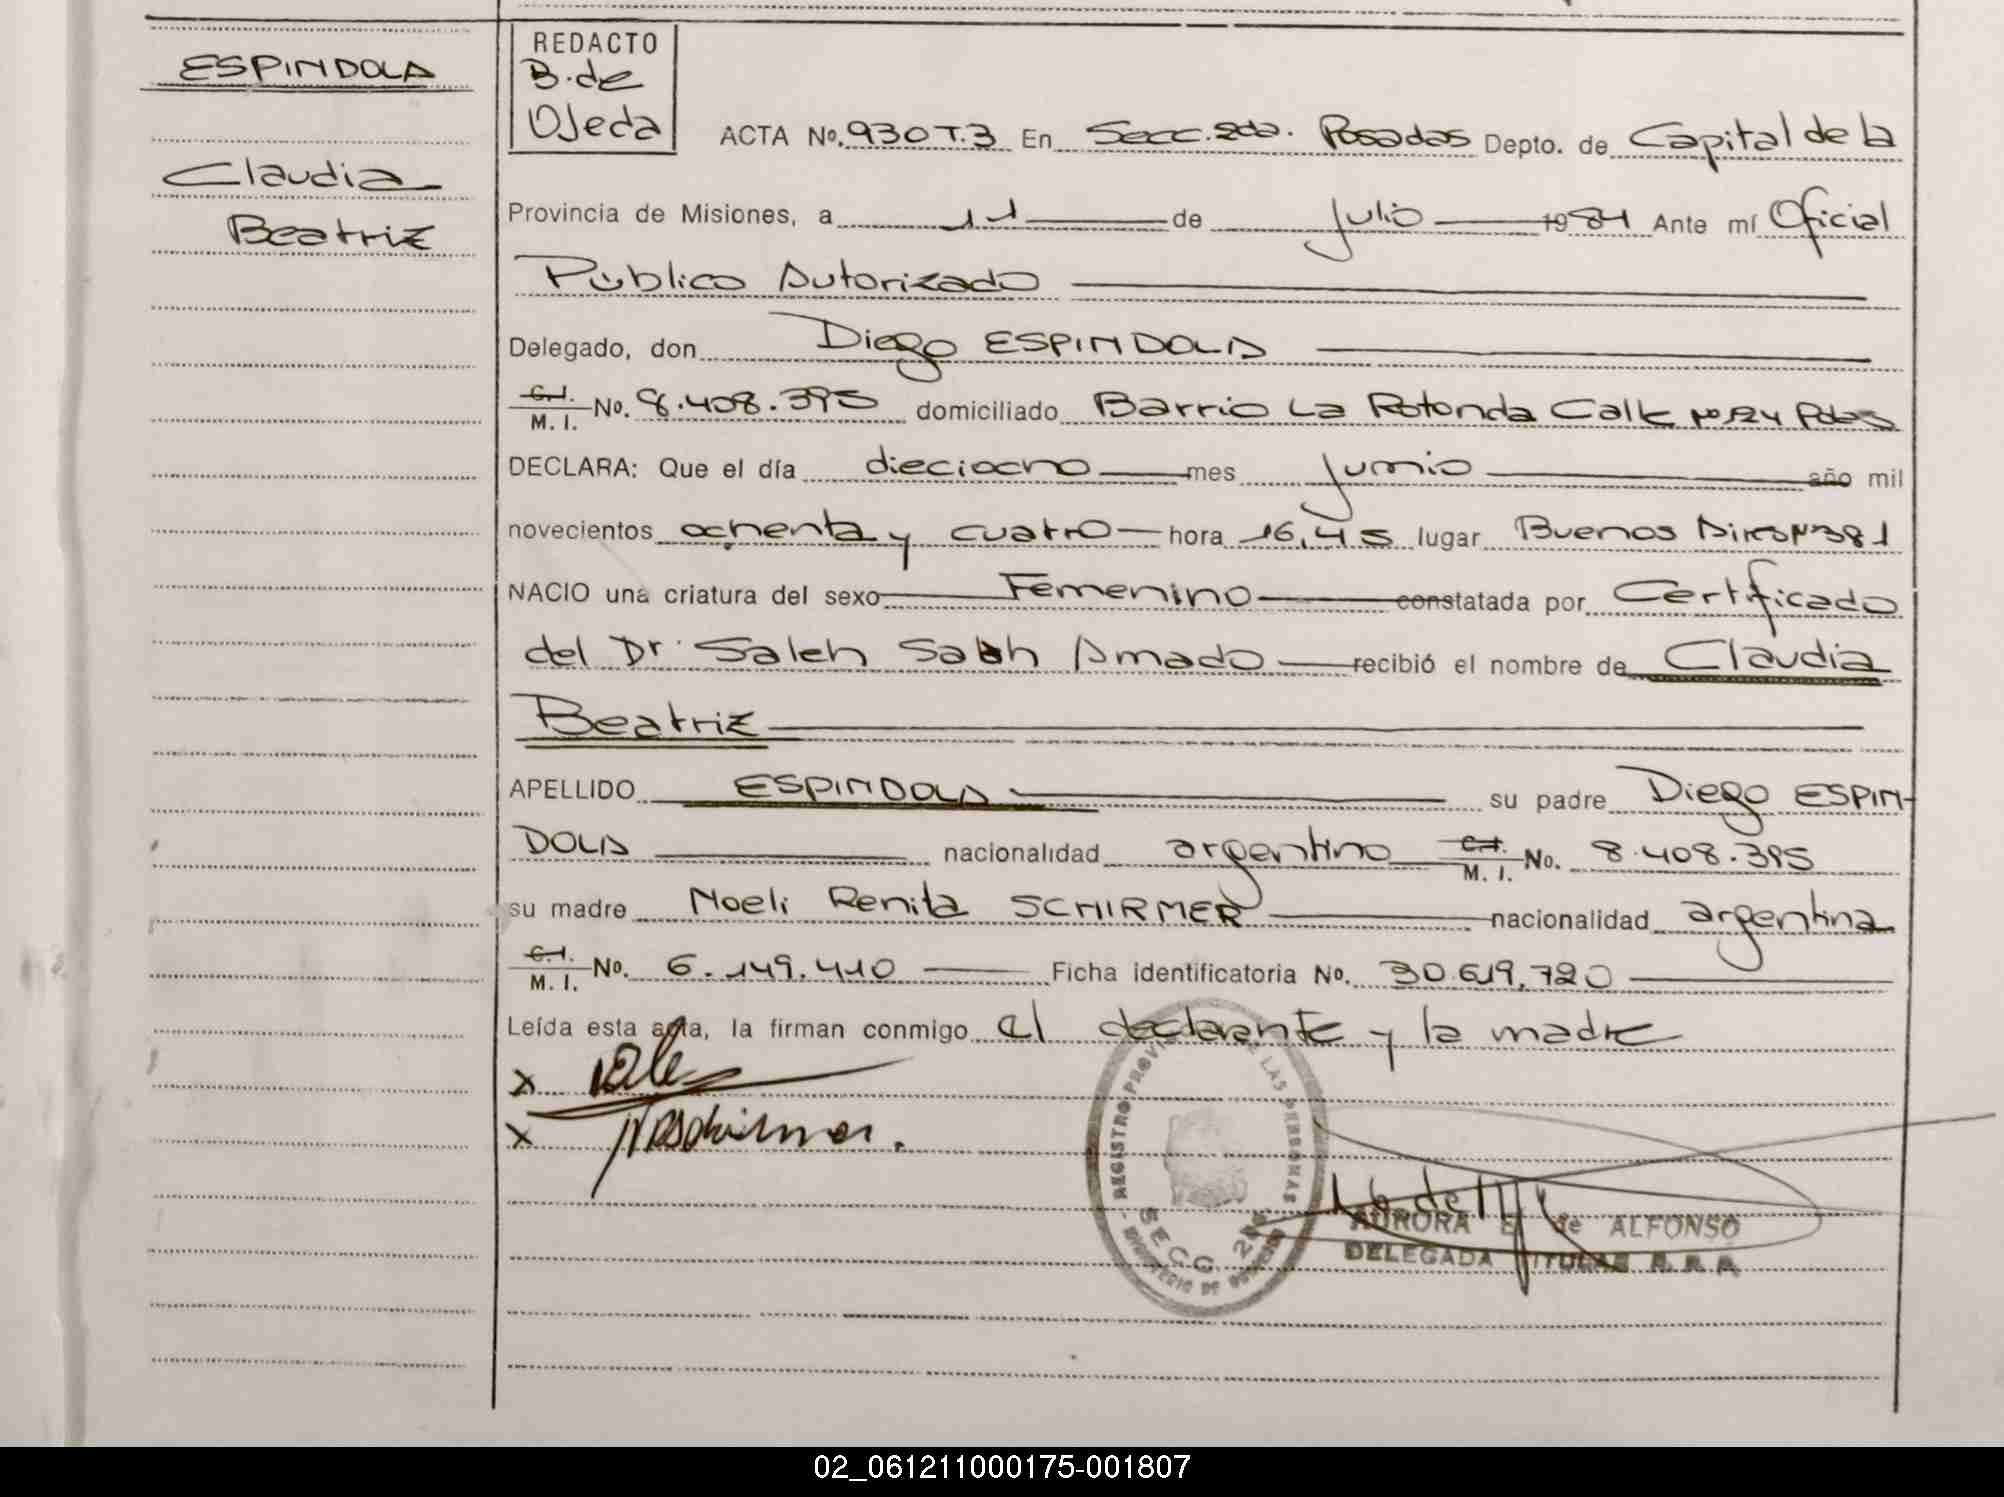 ESPINDOLA
Claudia
Beatriz
REDACTO
B. de
Ojeda
ACTA No. 930 T.3 En Secc. 2da. Posadas Depto. de Capital de la
Provincia de Misiones, a 11 de Julio 1984 Ante mí Oficial
Público Autorizado
Delegado, don Diego ESPINDOLA
C.I.
M. I. No. 8.408.395 domiciliado Barrio La Rotonda Calle Nº 124 Pdas
DECLARA: Que el día dieciocho mes Junio año mil
novecientos ochenta y cuatro hora 16,45 lugar Buenos Aires Nº 381
NACIO una criatura del sexo Femenino constatada por Certificado
del Dr. Saleh Amado recibió el nombre de Claudia
Beatriz
APELLIDO ESPINDOLA su padre Diego ESPIN-
DOLA nacionalidad argentino C.I. M. I. No. 8.408.395
su madre Noeli Renita SCHIRMER nacionalidad argentina
C.I.
M. I. No. 6.149.410 Ficha identificatoria No. 30.619.720
Leída esta acta, la firman conmigo el declarante y la madre
x
x NRSchirmer.
REGISTRO PROVINCIAL DE LAS PERSONAS
SECC. 2da
MINISTERIO DE GOBIERNO
AURORA E de ALFONSO
DELEGADA TITULAR R. P. P.
02_061211000175-001807